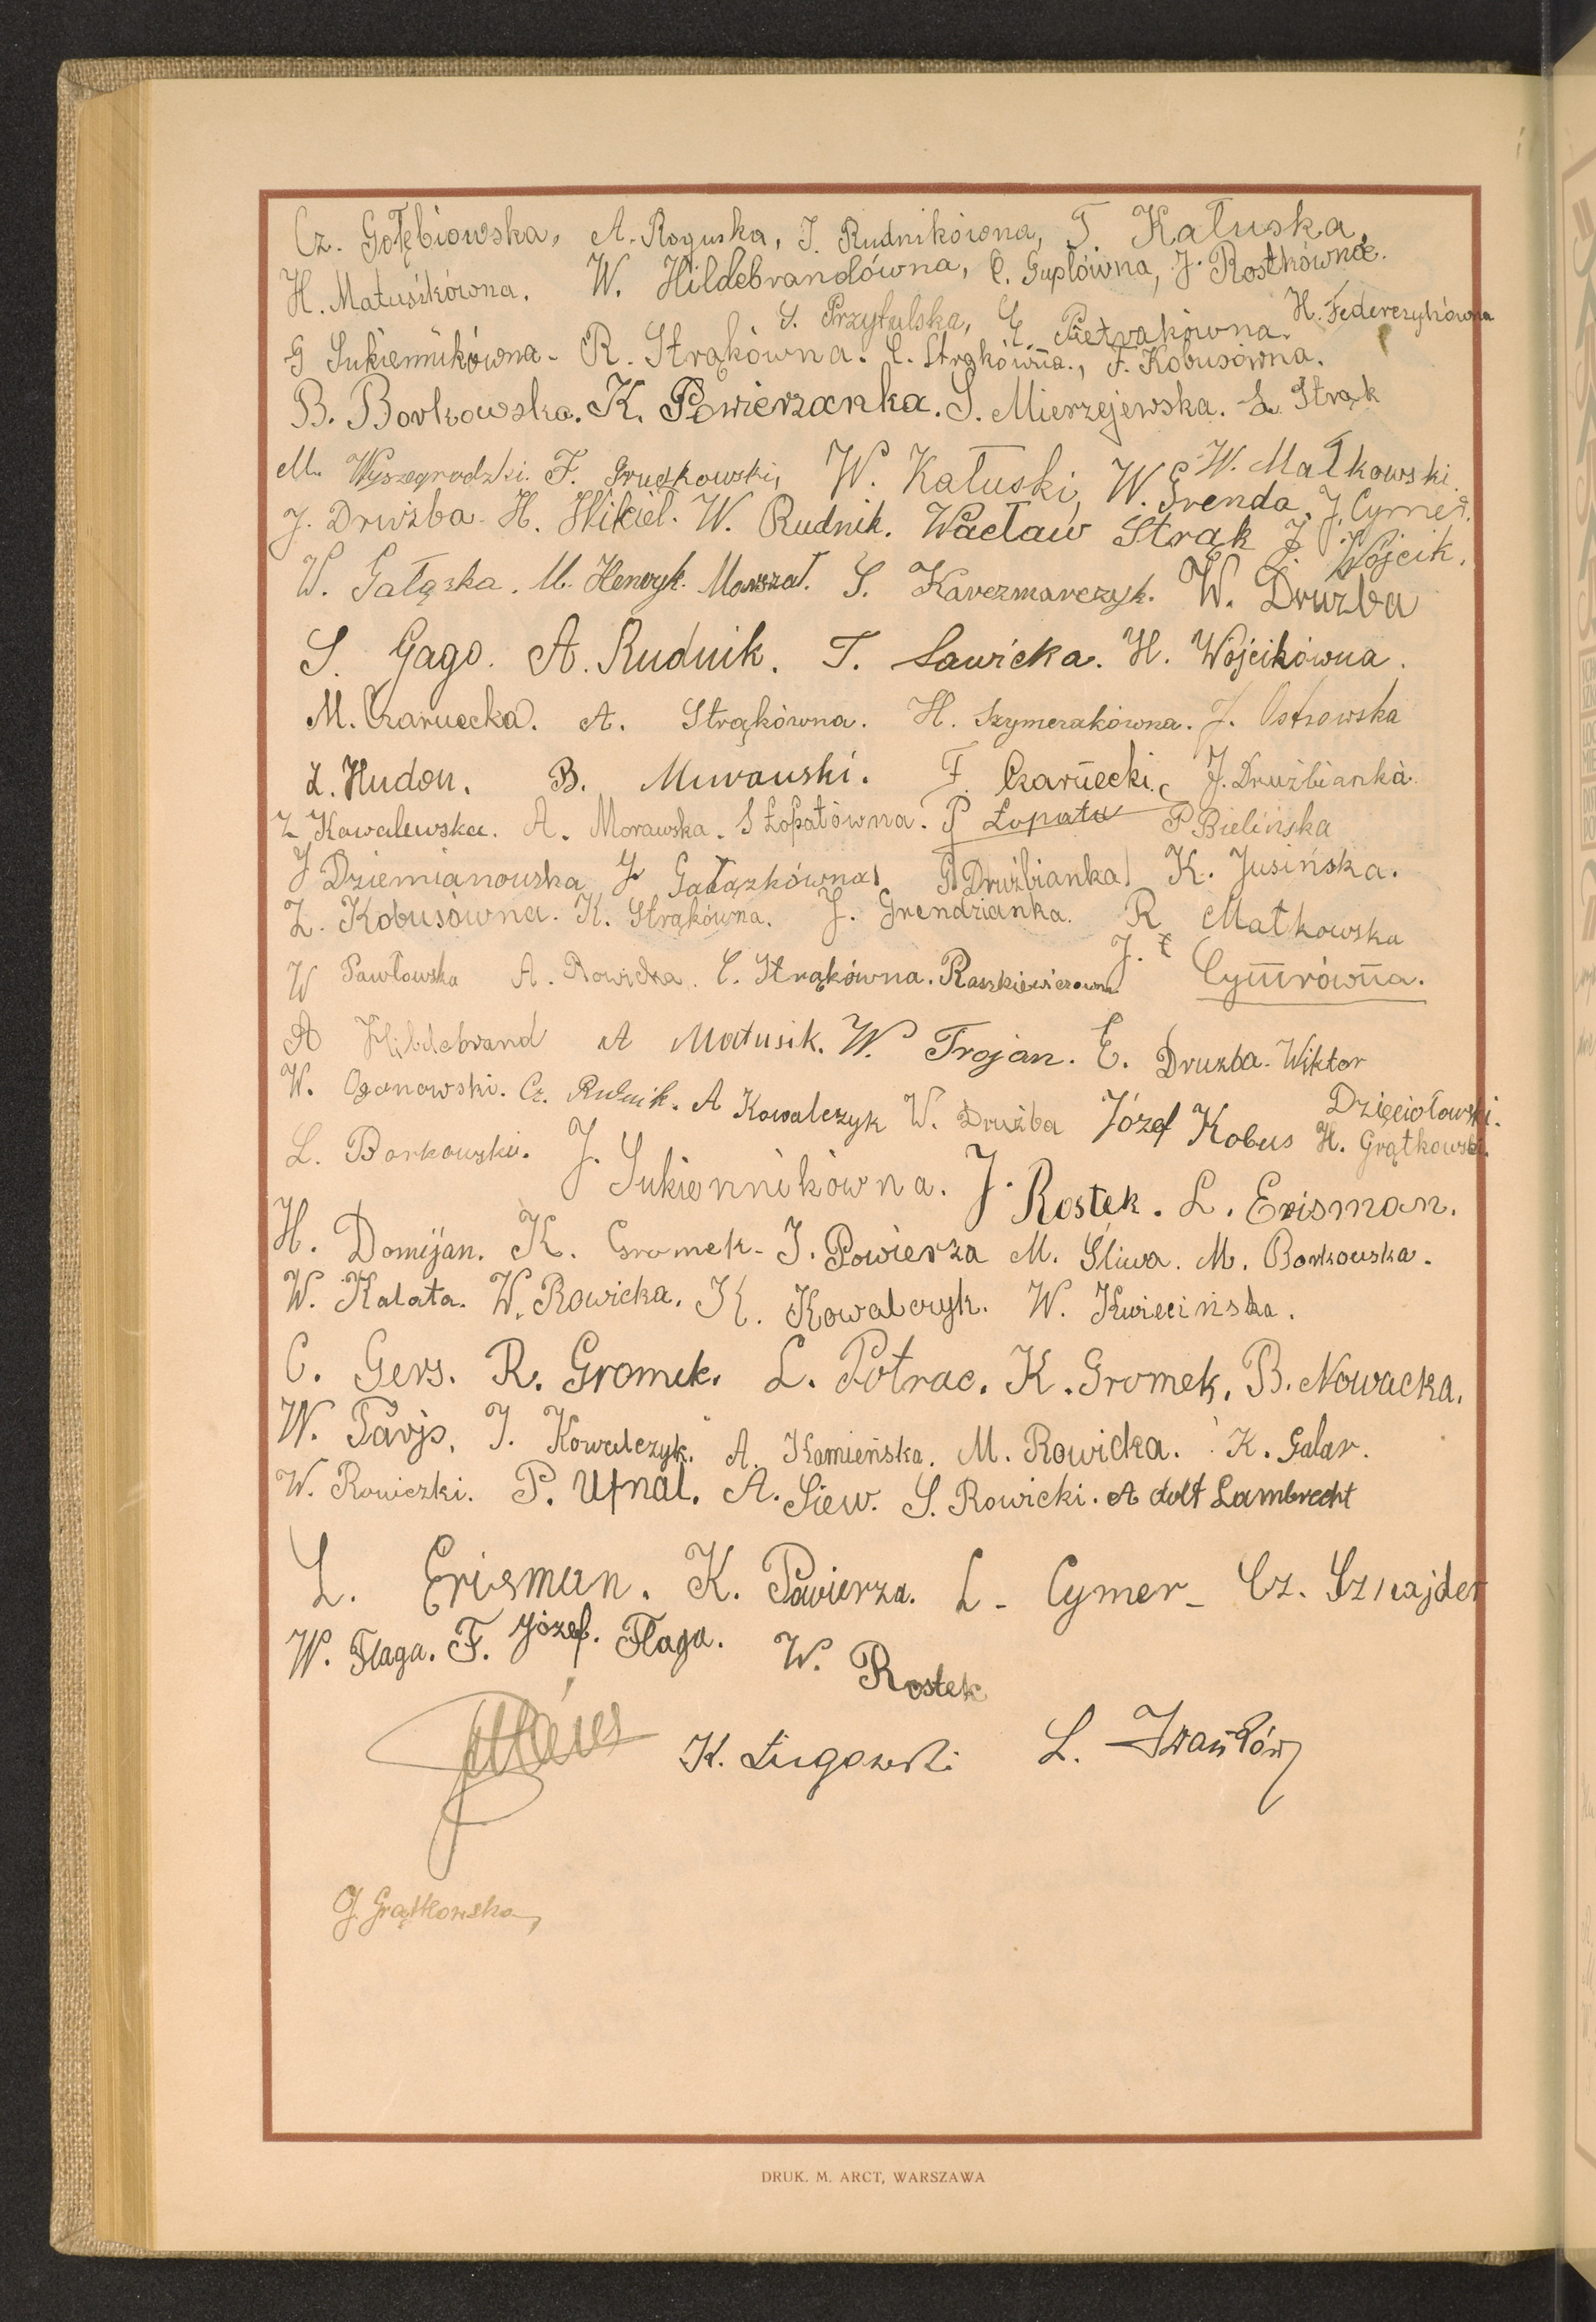 Cz. Gołębiowska, A. Roguska, J. Rudnikówna, T. Kałuska,
H. Matusikówna. W. Hildebrandówna, C. Guptówna, J. Rostkówna.
S. Przytulska, E. Pietrakówna. H. Federczykówna
G Sukiennikówna. R. Strąkówna. C. Strąkówna., F. Kobusówna.
B. Borkowska. K. Powierzanka. S. Mierzejewska. L. Strąk
M. Wyszogrodzki. F. Grudkowski, W. Kałuski, W. Małkowski.
J. Drużba. H. Hikiel. W. Rudnik. Wacław Strąk W. Grenda. J. Cymer.
W. Gałązka. M. Henryk. Marszał. S. Karczmarczyk. W. Drużba J. Wójcik.
S. Gago. A. Rudnik. T. Sawicka. H. Wójcikówna.
M. Czarnecka. A. Strąkówna. H. Szymczakówna. J. Ostrowska
Z. Hudon. B. Murawski. F. Czarnecki. J. Drużbianka.
Z Kowalewska. A. Morawska. S Łopatówna. P Łopata P Bielińska
J Dziemianowska J Gałązkówna G Drużbianka K. Jusińska.
Z. Kobusówna. K. Strąkówna. J. Grendzianka. R Małkowska
W Pawłowska A. Rowicka. C. Strąkówna. Raszkiewiczowna J. Cymrówna.
A Hildebrand A Matusik. W. Trojan. E. Drużba. Wiktor Dzięciołowski.
W. Oganowski. Cz. Rudnik. A Kowalczyk W. Drużba Józef Kobus H. Grątkowski.
L. Borkowski. J. Sukiennikówna. J. Rostek. L. Erisman.
H. Domijan. K. Gromek. J. Powierza M. Śliwa. M. Borkowska.
W. Kalata. W. Rowicka. K. Kowalczyk. W. Kwiecińska.
C. Gers. R. Gromek. L. Potrac. K. Gromek. B. Nowacka.
W. Parys. J. Kowalczyk. A. Kamieńska. M. Rowicka. K. Galar.
W. Rowiczki. P. Ufnal. A. Siew. S. Rowicki. Adolf Lambrecht
L. Erisman. K. Powierza. L. Cymer. Cz. Sznajder
W. Flaga. F. Józef. Flaga. W. Rostek
K. Ługowski L.
J. Grątkowska
DRUK. M. ARCT, WARSZAWA